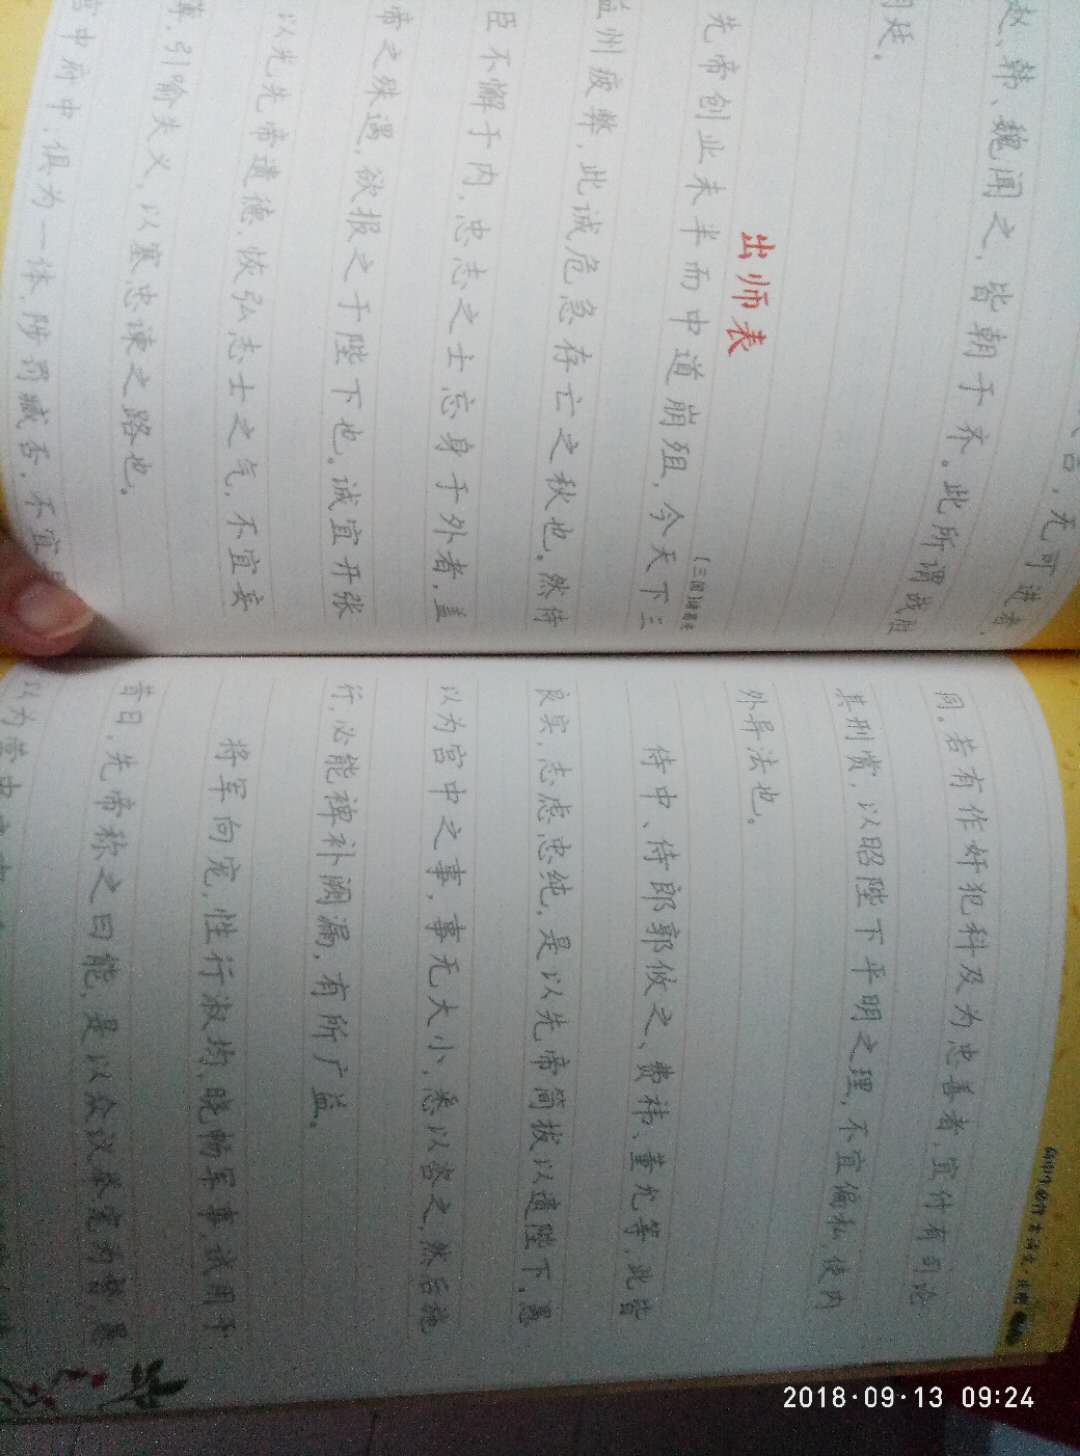 言，无可进者，
赵、韩、魏闻之，皆朝于齐。此所谓战胜
廷。
出师表
(三国)诸葛亮
先帝创业未半而中道崩殂，今天下三
益州疲弊，此诚危急存亡之秋也。然侍
臣不懈于内，忠志之士忘身于外者，盖
帝之殊遇，欲报之于陛下也。诚宜开张
以光先帝遗德，恢弘志士之气，不宜妄
薄，引喻失义，以塞忠谏之路也。
宫中府中，俱为一体，陟罚臧否，不宜
同。若有作奸犯科及为忠善者，宜付有司论
其刑赏，以昭陛下平明之理，不宜偏私，使内
外异法也。
侍中、侍郎郭攸之、费祎、董允等，此皆
良实，志虑忠纯，是以先帝简拔以遗陛下。愚
以为宫中之事，事无大小，悉以咨之，然后施
行，必能裨补阙漏，有所广益。
将军向宠，性行淑均，晓畅军事，试用于
昔日，先帝称之曰能，是以众议举宠为督。愚
以为营中之
2018·09·13 09:24